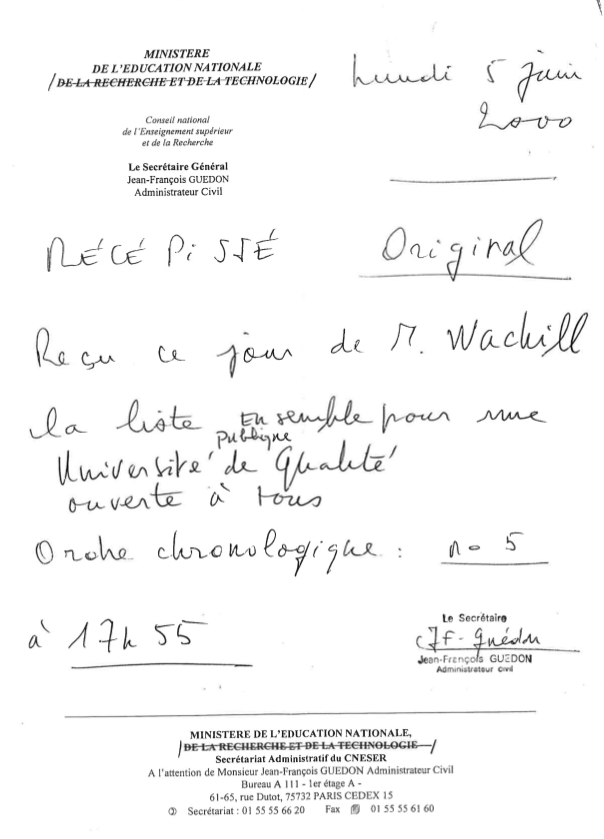 MINISTERE
DE L'EDUCATION NATIONALE
/DE LA RECHERCHE ET DE LA TECHNOLOGIE/
Lundi 5 juin
2000
Conseil national
de l'Enseignement supérieur
et de la Recherche
Le Secrétaire Général
Jean-François GUEDON
Administrateur Civil
RÉCÉPISSÉ
Original
Reçu ce jour de M. Wachill
la liste Ensemble pour une
publique
Université de Qualité
ouverte à tous
Ordre chronologique : no 5
à 17h55
Le Secrétaire
JF-Guédon
Jean-François GUEDON
Administrateur civil
MINISTERE DE L'EDUCATION NATIONALE,
/DE LA RECHERCHE ET DE LA TECHNOLOGIE/
Secrétariat Administratif du CNESER
A l'attention de Monsieur Jean-François GUEDON Administrateur Civil
Bureau A 111 - 1er étage A -
61-65, rue Dutot, 75732 PARIS CEDEX 15
Secrétariat : 01 55 55 66 20 Fax 01 55 55 61 60